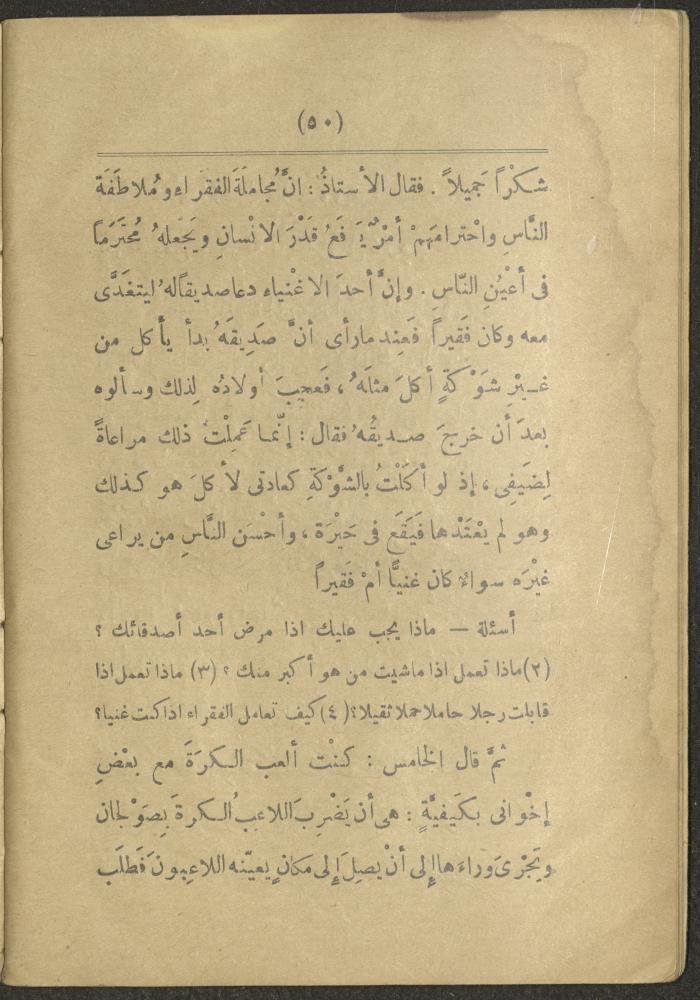 (٥٠)
شكْراً جَميلاً . فقال الأستاذُ : انَّ مُجاملَةَ الفقراء ومُلاطَفَة
النَّاسِ واحْترامَهمْ أمْرٌ يَرفَعُ قَدْرَ الانْسان ويَجْعله ُ مُحْتَرَمًا
فى أعْيُنِ النَّاس . وإنَّ أحدَ الاغْنياء دعا صديقاً له ُ ليتغدَّى
معه وكان فَقيراً فَعِند ما رأى أنَّ صَدِيقَهُ بدأ يأكل من
غـيْرِ شَوْكَةٍ أكلَ مثلَهُ ، فَعجِبَ أولادُه لِذلك وسألوه
بعدَ أن خرجَ صـديقُه ُ فقال : إنّمـا عَمِلْتُ ذلك مراعاةً
لِضَيفِى ، إذ لو أكَلْتُ بالشَّوْكَةِ كعادتى لأكلَ هو كـذلك
وهو لم يعْتَدْها فَيَقَع فى حَيْرَة ، وأحْسَن النَّاسِ من يراعى
غيْرَه سواءٌ كان غنيًّا أمْ فَقيراً
أسئلة — ماذا يجب عليك اذا مرض أحد أصدقائك ؟
(٢) ماذا تعمل اذا ماشيت من هو أكبر منك ؟ (٣) ماذا تعمل اذا
قابلت رجلا حاملا حملا ثقيلا؟ (٤) كيف تعامل الفقراء اذا كنت غنيا؟
ثمَّ قال الخامس : كـنْت ألعب الـكرَةَ مع بعْضِ
إخْوانى بكَيفيَّةٍ : هى أن يَضْرِبَ اللاعبُ الـكرة بِصَوْلجان
ويَجْرىَ وراءها إلى أنْ يصِلَ إلى مَكانٍ يعيّنه اللاعبونَ فَطلَب